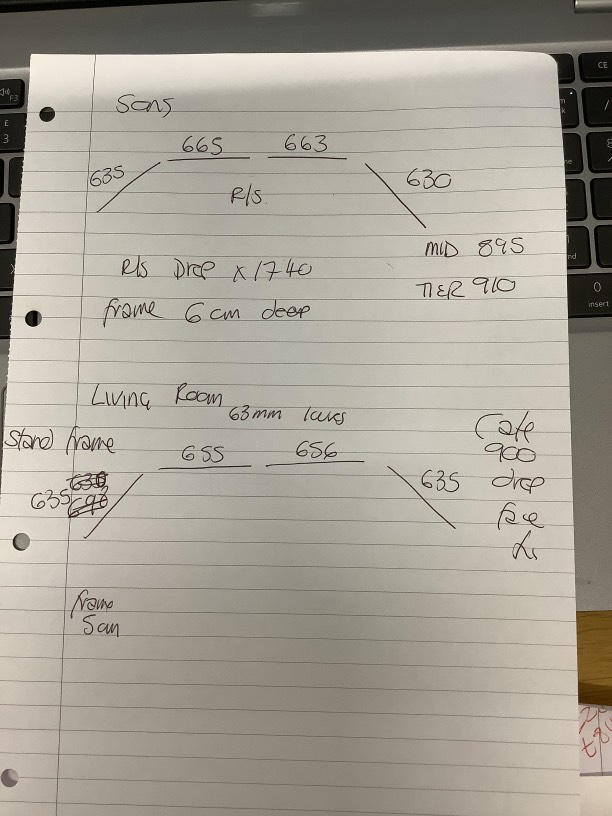 Sons
665 663
635 630
R/S
MID 895
R/S Drop x 1740
TIER 910
frame 6 cm deep
Living Room
63mm
Cafe
Stand frame
655 656
900
635 635
drop
frame
San